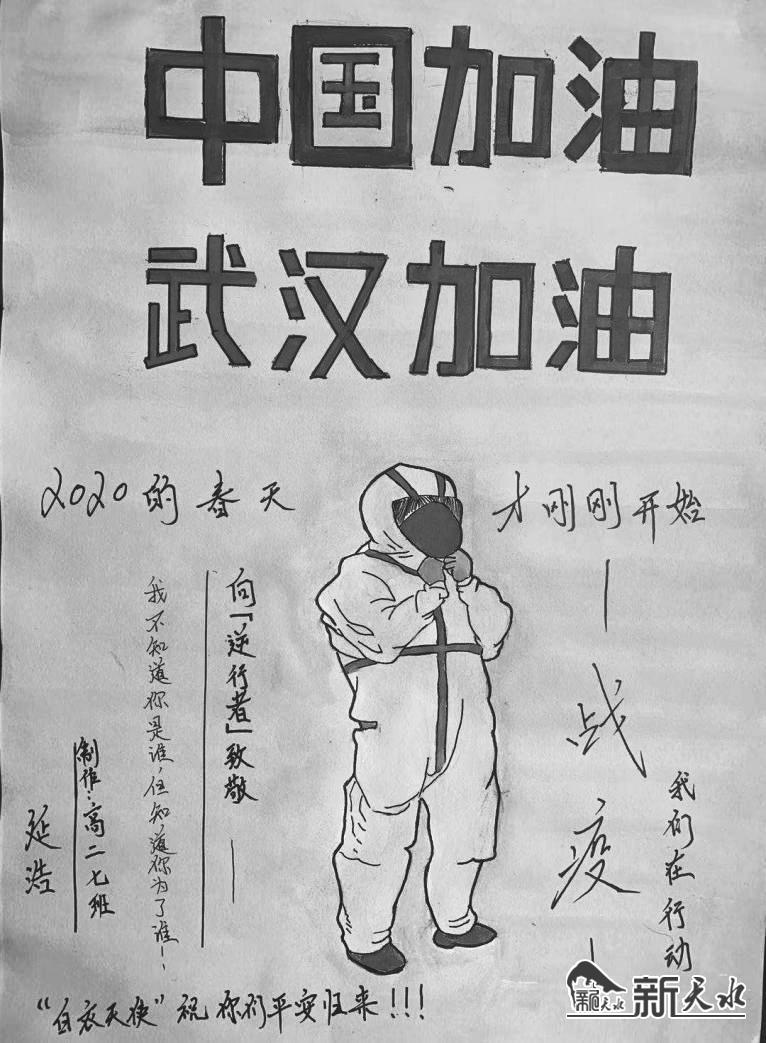 中国加油
武汉加油
2020的春天
才刚刚开始
向「逆行者」致敬——
我不知道你是谁，但知道你为了谁！、
制作：高二七班
延浩
—战疫—
我们在行动
“白衣天使”祝你们平安归来！！！
新天水